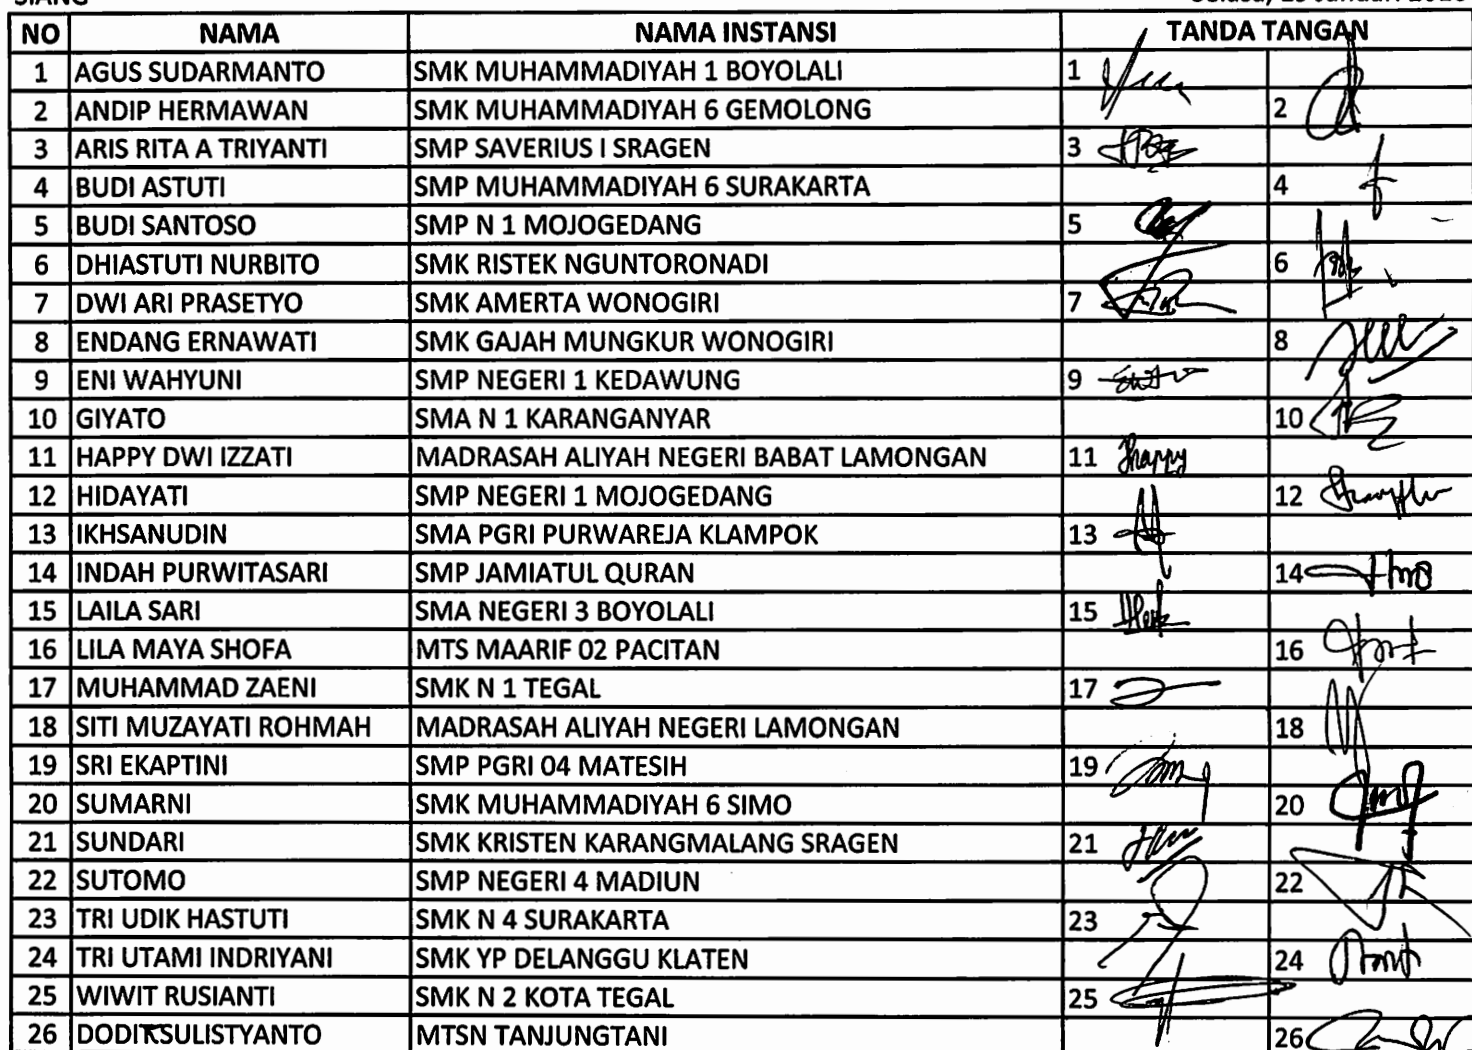 SIANG
NO NAMA NAMA INSTANSI TANDA TANGAN
1 AGUS SUDARMANTO SMK MUHAMMADIYAH 1 BOYOLALI 1
2 ANDIP HERMAWAN SMK MUHAMMADIYAH 6 GEMOLONG 2
3 ARIS RITA A TRIYANTI SMP SAVERIUS I SRAGEN 3
4 BUDI ASTUTI SMP MUHAMMADIYAH 6 SURAKARTA 4
5 BUDI SANTOSO SMP N 1 MOJOGEDANG 5
6 DHIASTUTI NURBITO SMK RISTEK NGUNTORONADI 6
7 DWI ARI PRASETYO SMK AMERTA WONOGIRI 7
8 ENDANG ERNAWATI SMK GAJAH MUNGKUR WONOGIRI 8
9 ENI WAHYUNI SMP NEGERI 1 KEDAWUNG 9
10 GIYATO SMA N 1 KARANGANYAR 10
11 HAPPY DWI IZZATI MADRASAH ALIYAH NEGERI BABAT LAMONGAN 11 Happy
12 HIDAYATI SMP NEGERI 1 MOJOGEDANG 12
13 IKHSANUDIN SMA PGRI PURWAREJA KLAMPOK 13
14 INDAH PURWITASARI SMP JAMIATUL QURAN 14
15 LAILA SARI SMA NEGERI 3 BOYOLALI 15
16 LILA MAYA SHOFA MTS MAARIF 02 PACITAN 16
17 MUHAMMAD ZAENI SMK N 1 TEGAL 17
18 SITI MUZAYATI ROHMAH MADRASAH ALIYAH NEGERI LAMONGAN 18
19 SRI EKAPTINI SMP PGRI 04 MATESIH 19
20 SUMARNI SMK MUHAMMADIYAH 6 SIMO 20
21 SUNDARI SMK KRISTEN KARANGMALANG SRAGEN 21
22 SUTOMO SMP NEGERI 4 MADIUN 22
23 TRI UDIK HASTUTI SMK N 4 SURAKARTA 23
24 TRI UTAMI INDRIYANI SMK YP DELANGGU KLATEN 24
25 WIWIT RUSIANTI SMK N 2 KOTA TEGAL 25
26 DODIK SULISTYANTO MTSN TANJUNGTANI 26